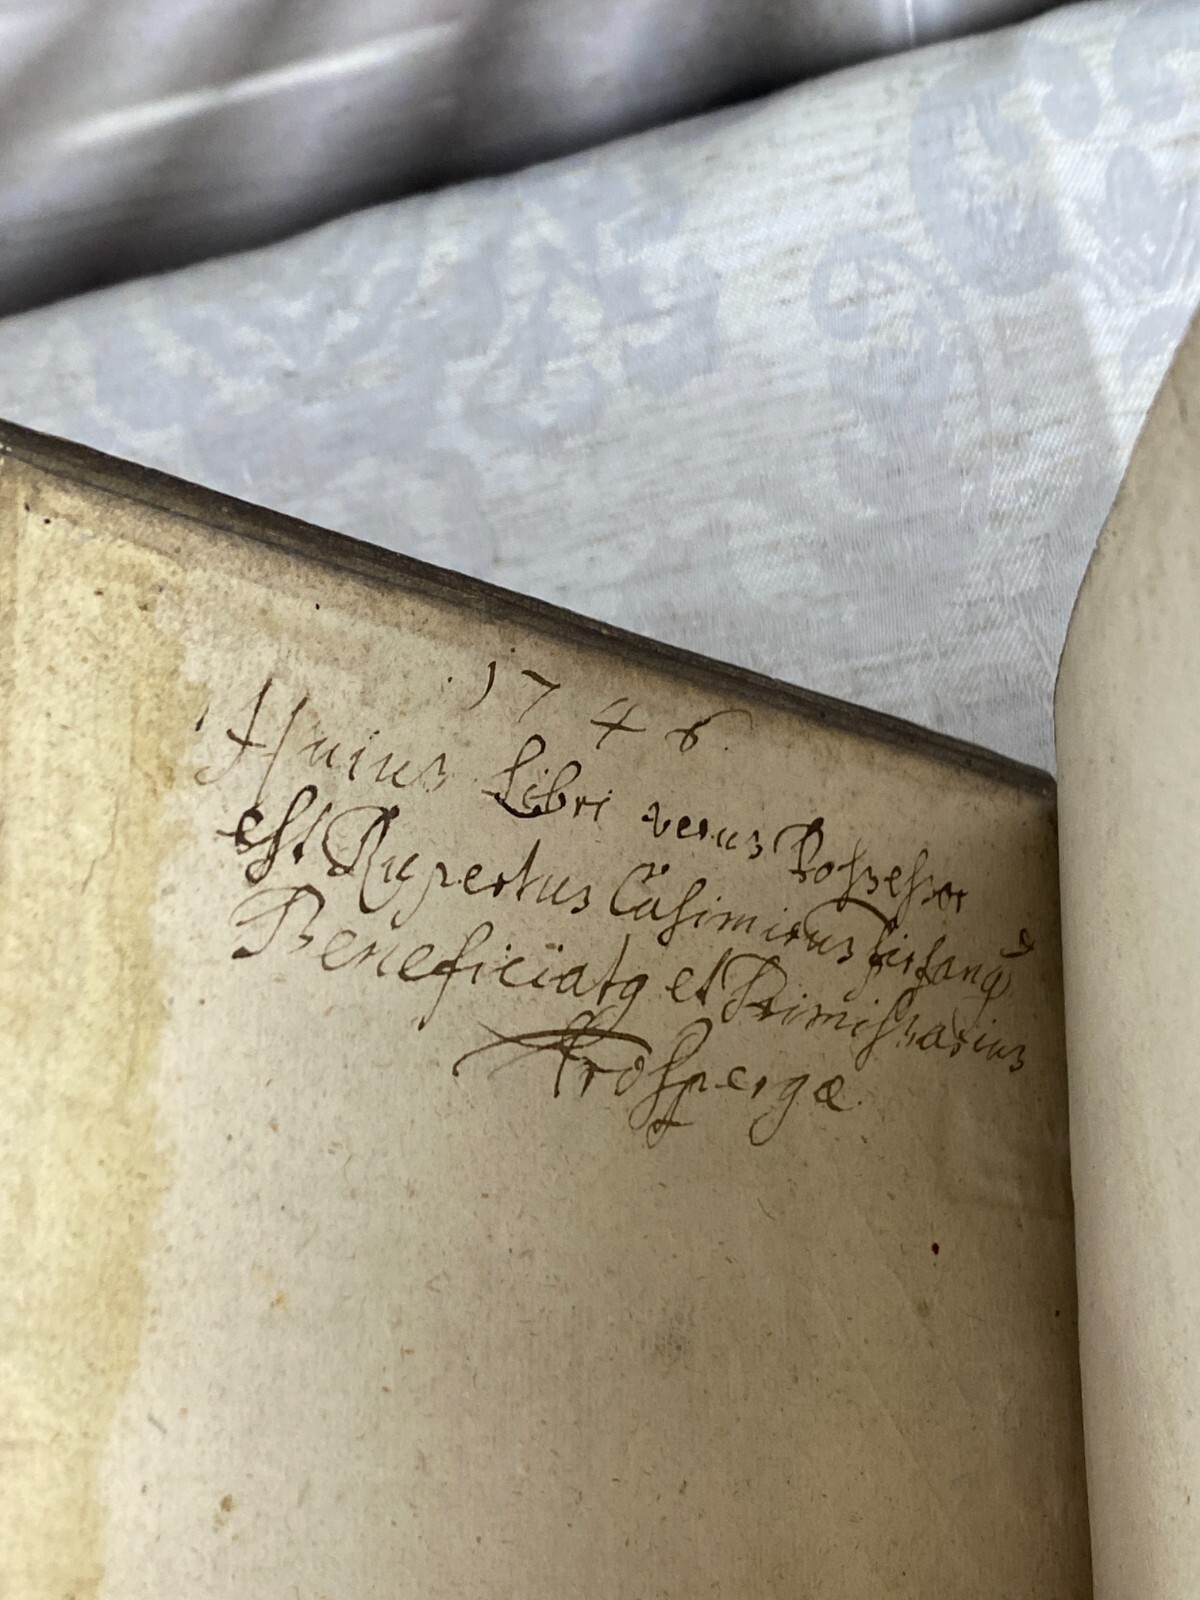 1746.
Huius Libri verus Possessor
est Rupertus Casimirus
Beneficiatq et Primissarius